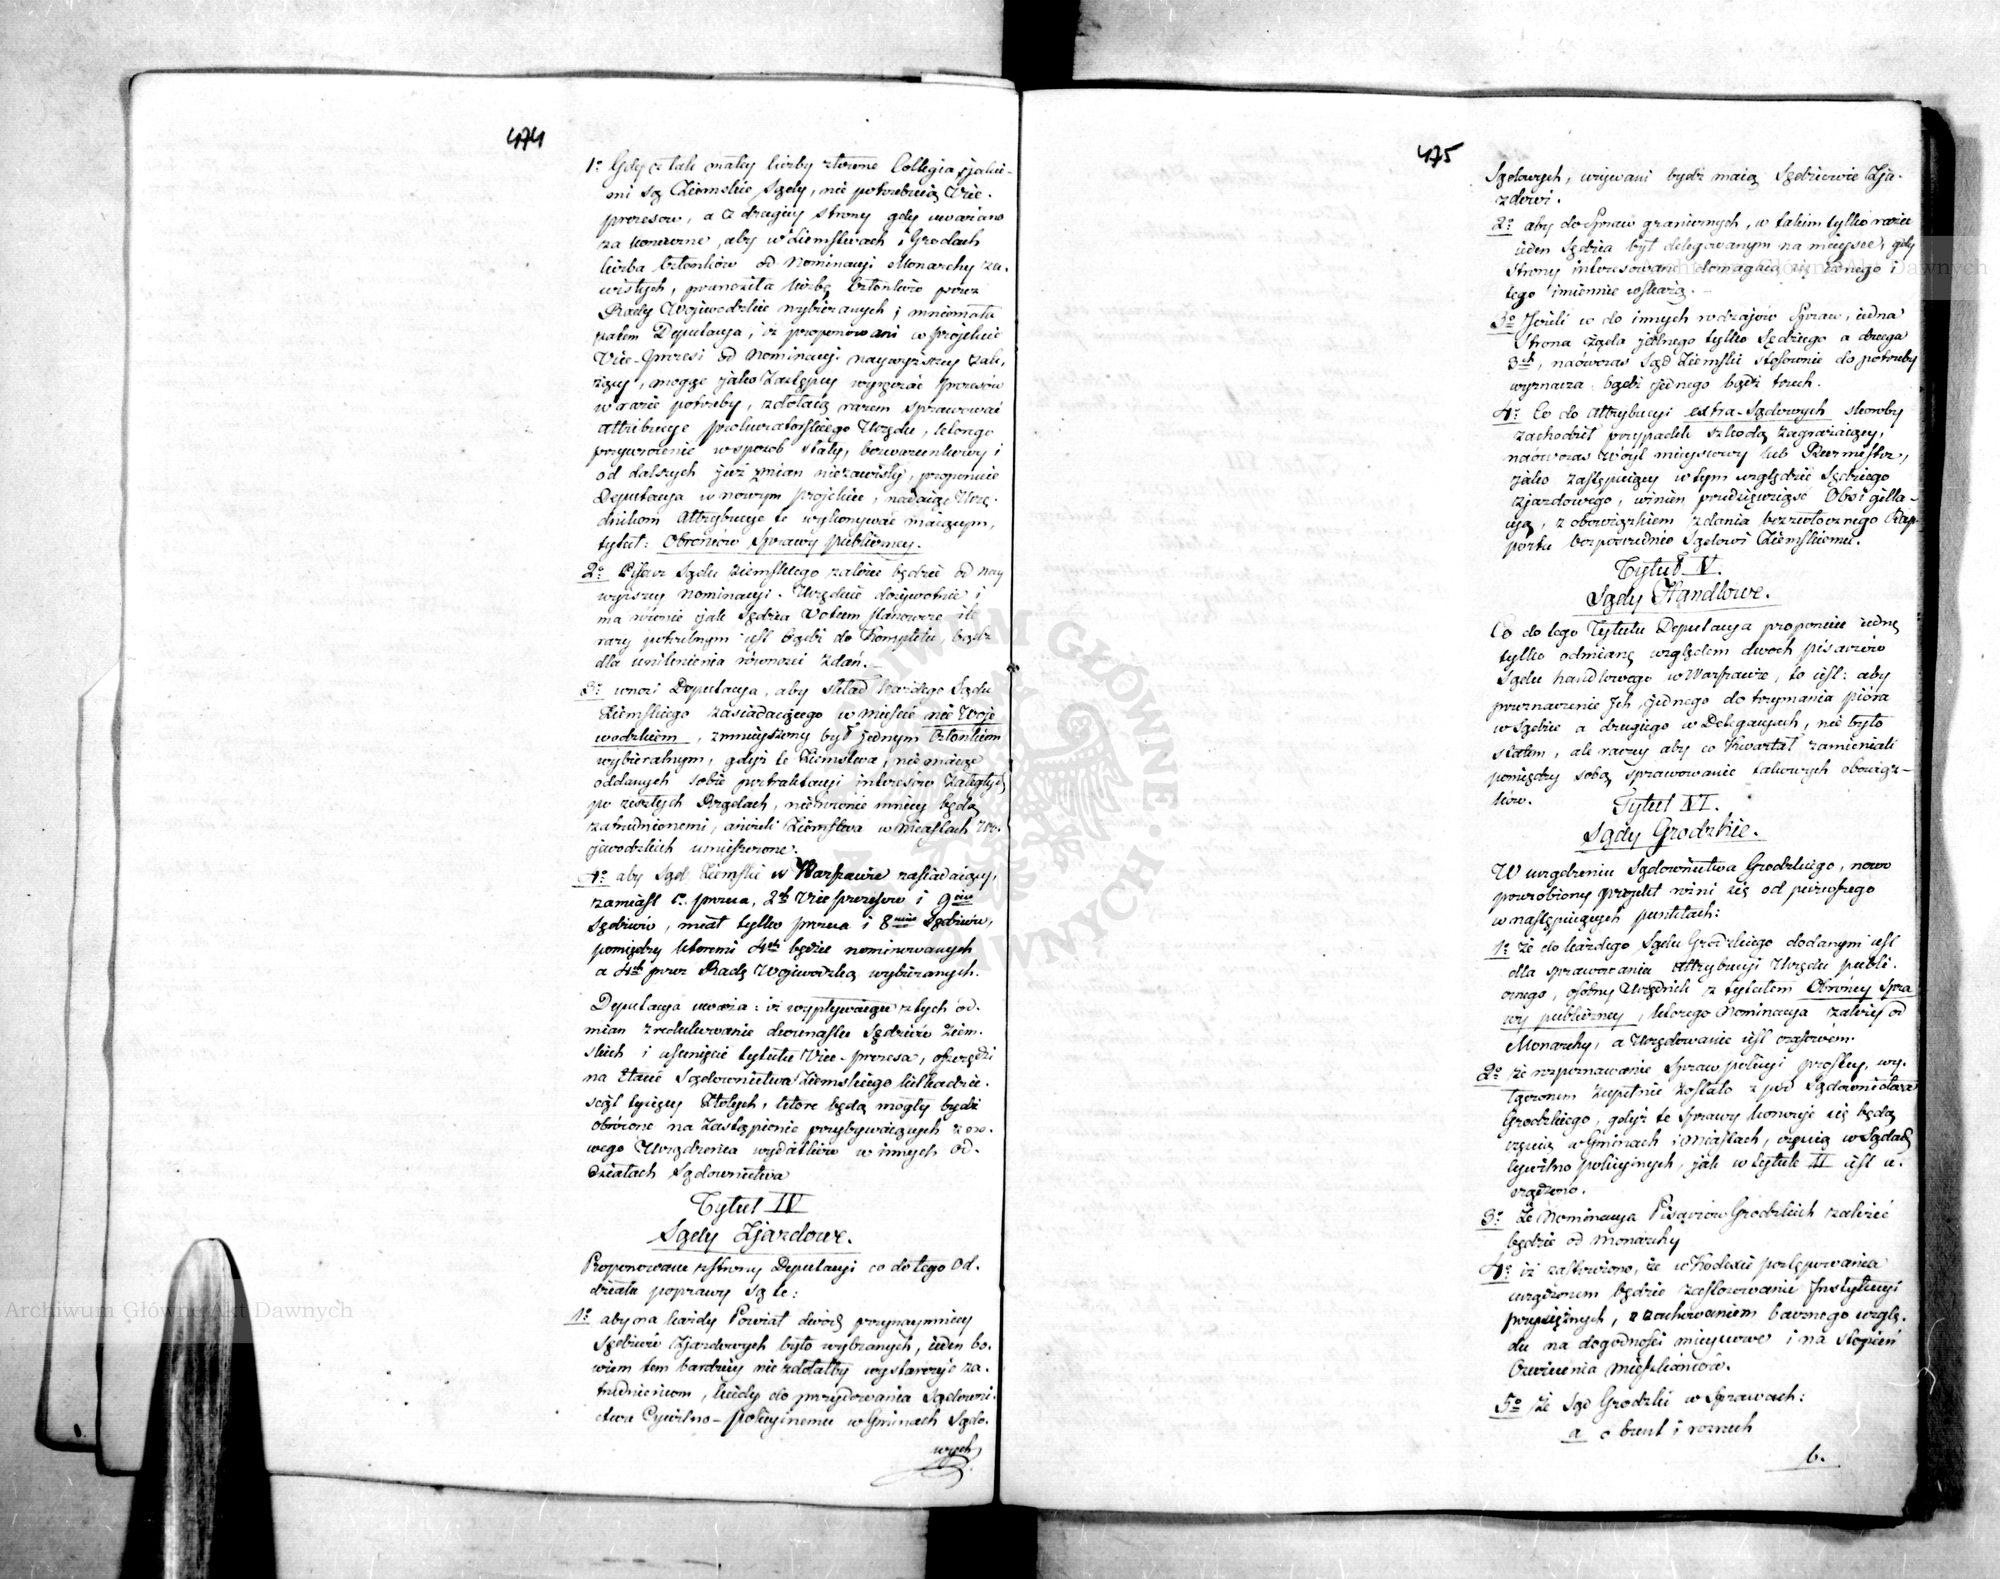 474
1º Gdy z tak małey liczby złożone Collegia, jakie-
mi są Ziemskie Sądy, nie potrzebuią Vice-
prezesow, a z drugiey strony gdy uważano
za konieczne, aby w Ziemstwach i Grodach
liczba Członków od Nominacyi Monarchy za-
wisłych, przenosiła liczbę Członków przez
Rady Woiewódzkie wybieranych; mniemała
zatem Deputacya, iż proponowani w projekcie
Vice-Prezesi od Nominacyi naywyższey zale-
żący, mogąc jako Zastępcy wyręczać Prezesów
w razie potrzeby, zdołaią razem sprawować
attribucye prokuratorskiego Urzędu, którego
przywrócenie w sposób stały, bezwarunkowy i
od dalszych już zmian niezawisły, proponuie
Deputacya w nowym projekcie, nadaiąc Urzę-
dnikom Attrybucye te wykonywać maiącym,
tytuł: Obrońców Sprawy publiczney.
2º Pisarz Sądu Ziemskiego zależeć będzie od nay
wyższey Nominacyi. Urzęduie dożywotnie i
ma równie jak Sędzia Votum stanowcze ile
razy potrzebnym iest bądź do Kompletu, bądź
dla uniknienia równości zdań.
3º wnosi Deputacya, aby skład każdego Sądu
Ziemskiego zasiadaiącego w mieście nie Woje
wódzkiem, zmnieyszony był jednym Członkiem
wybieralnym, gdyż te Ziemstwa, nie maiąc
oddanych sobie pertraktacyi interesów zaległych
po zeszłych Rządach, nierównie mniey będą
zatrudnionemi, aniżeli Ziemstwa w Miastach Wo-
jewodzkich umieszczone.
4º aby Sąd Ziemski w Warszawie zasiadaiący,
zamiast 1º. prezesa, 2ch Vice prezesów i 9ciu
Sędziów, miał tylko prezesa i 8miu Sędziów,
pomiędzy któremi 4ch będzie nominowanych
a 4ch przez Radę Wojewodzką wybieranych.
Deputacya uważa: iż wypływaiące z tych od-
mian zredukowanie dwunastu Sędziów Ziem-
skich i usunięcie tytułu Vice-prezesa, oszczędzi
na Etacie Sądownictwa Ziemskiego kilkadzie-
siąt tysięcy Złotych, które będą mogły bydź
obrócone na zastąpienie przybywaiących z no-
wego Urządzenia wydatków w innych od-
działach Sądownictwa
Tytuł IV
Sądy Zjazdowe.
Proponowane ze strony Deputacyi co do tego Od-
działu poprawy są te:
1º aby na każdy Powiat dwóch przynaymniey
Sędziów Zjazdowych było wybranych, ieden bo-
wiem tem bardziey nie zdołałby wystarczyć za-
trudnieniom, kiedy do przydowania Sądowni-
ctwu Cywilno-policyinemu w Gminach Sądo-
wych
475
Sądowych, wzywani bydź maią Sędziowie Zja-
zdowi.
2º aby do Spraw granicznych, w takim tylko razie
ieden Sędzia był delegowanym na mieysce, gdy
Strony interesowane domagaią się iednego i
tego imiennie wskażą.
3º Jeżeli w do innych rodzajów Spraw, iedna
Strona żąda jednego tylko Sędziego a druga
3ch, naówczas Sąd Ziemski stosownie do potrzeby
wyznacza bądź jednego bądź trzech.
4º Co do attrybucyi extra-Sądowych skoroby
zachodził przypadek szkodą zagrażaiący,
naówczas Wóyt mieyscowy lub Burmistrz,
jako zastępuiący w tym względzie Sędziego
zjazdowego, winien przedsięwziąść Obsigilla-
cyą, z obowiązkiem zdania bezzwłocznego Rap-
portu bezpośrednio Sądowi Ziemskiemu.
Tytuł V.
Sądy Handlowe.
Co do tego Tytułu Deputacya proponuie iednę
tylko odmianę względem dwóch pisarzów
Sądu handlowego w Warszawie, to iest: aby
przeznaczenie Jch, jednego do trzymania pióra
w Sądzie a drugiego w Delegacyach, nie było
stałem, ale raczey aby co Kwartał zamieniali
pomiędzy sobą sprawowanie takowych obowiąz-
ków.
Tytuł VI.
Sądy Grodzkie.
W urządzeniu Sądownictwa Grodzkiego, nowo
przerobiony projekt różni się od pierwszego
w następuiących punktach:
1º że do każdego Sądu Grodzkiego dodanym iest
dla sprawowania attrybucyi Urzędu publi-
cznego, osobny Urzędnik z tytułem Obrońcy Spra
wy publiczney, którego Nominacya zależy od
Monarchy, a Urzędowanie iest czasowém.
2º że rozpoznawanie Spraw policyi prostey, wy-
łączonem zupełnie zostało z pod Sądownictwa
Grodzkiego, gdyż te Sprawy kończyć się będą
częścią w Gminach i Miastach, częścią w Sądach
Cywilno policyinych, jak w tytule II iest u-
rządzono.
3º Że Nominacya Pisarzów Grodzkich zależeć
będzie od Monarchy
4º iż zastrzeżono, że w Kodexie postępowania
urządzonem będzie zastosowanie Instytucyi
przysięgłych, z zachowaniem bacznego wzglę-
du na dogodności mieyscowe i na stopień
Oświecenia mieszkańców.
5º że Sąd Grodzki w Sprawach:
a o bunt i rozruch
b.
Archiwum Główne Akt Dawnych
Archiwum Główne Akt Dawnych
ARCHIWUM GŁÓWNE AKT DAWNYCH